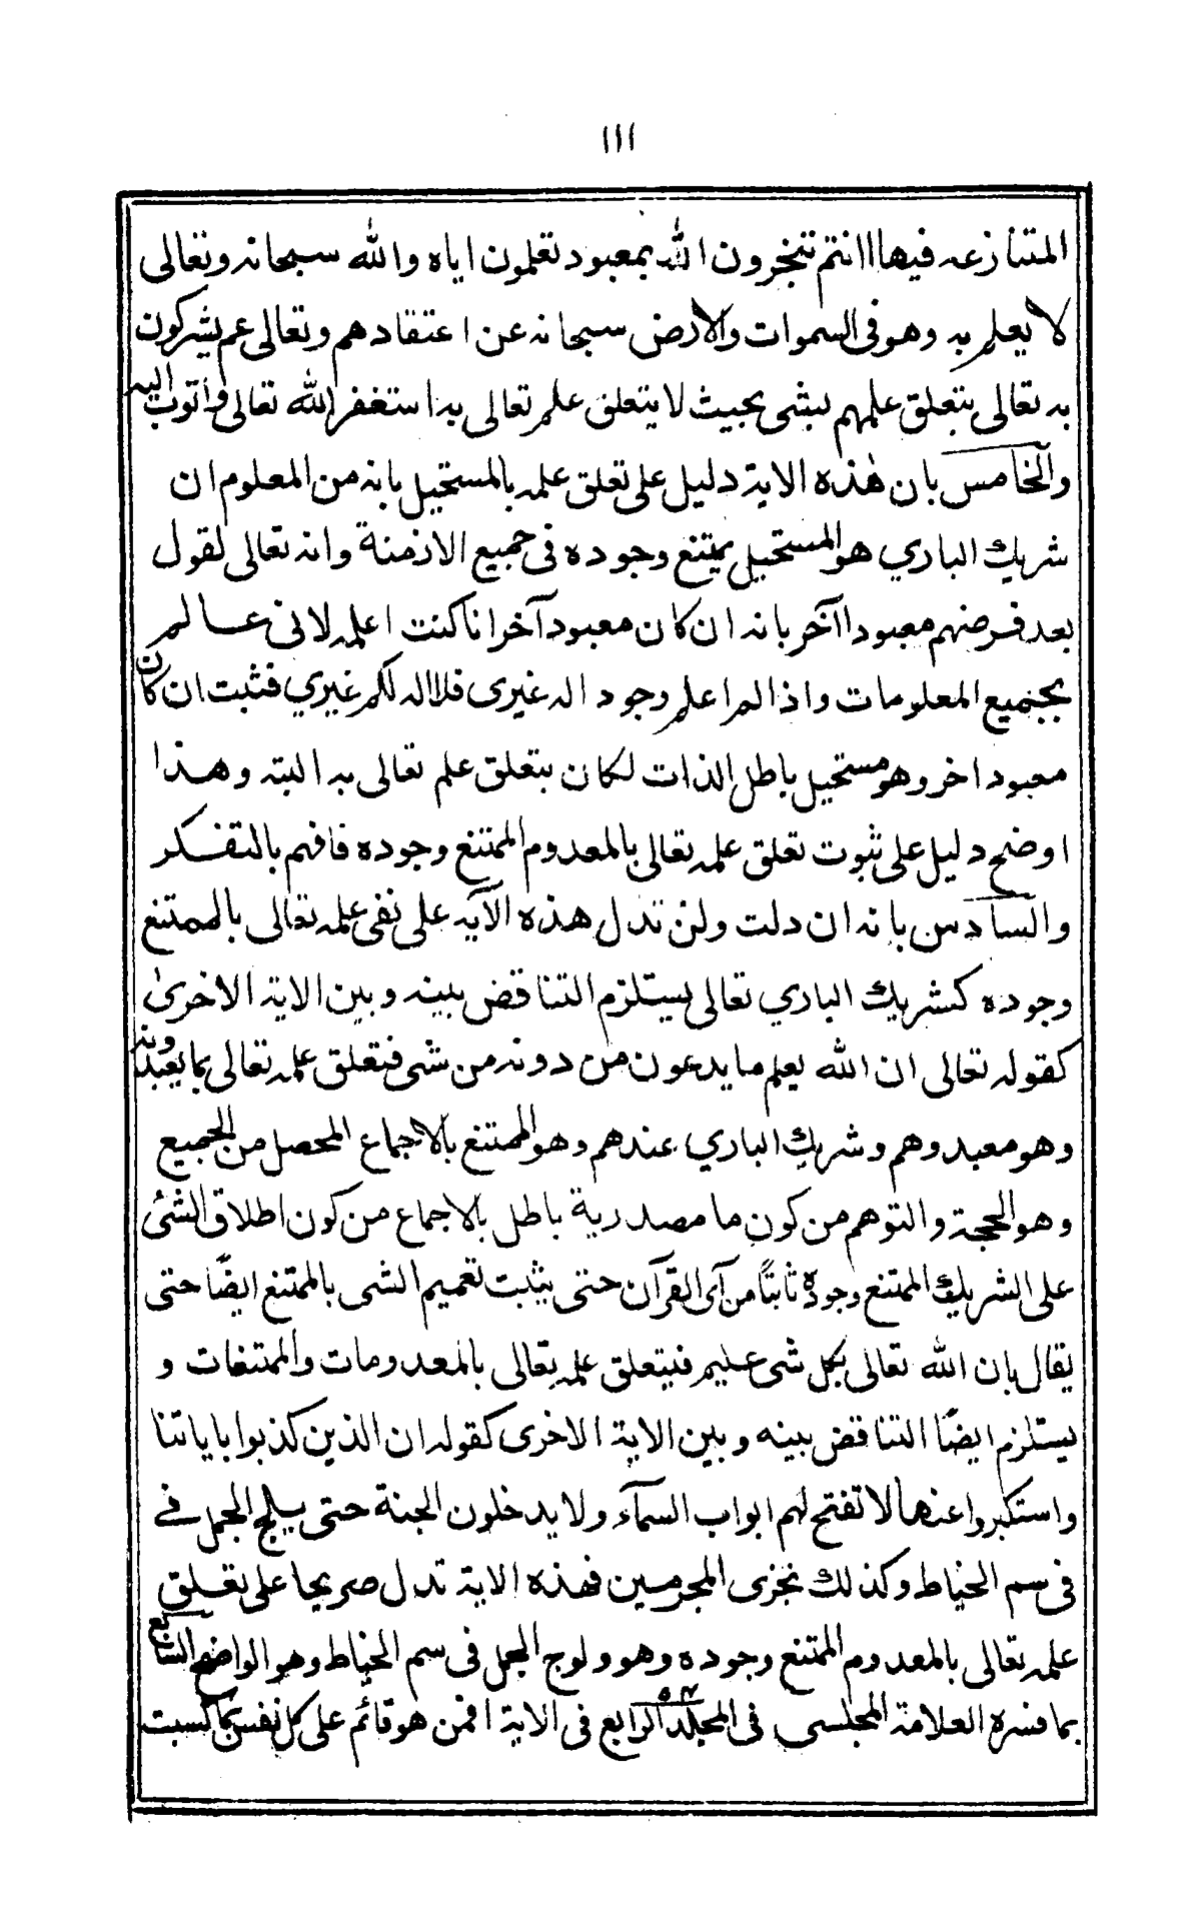 ١١١
المتنازعه فيها اانتم تخبرون الله بمعبود تعلمون اياه والله سبحانه وتعالى
لا يعلم به وهو في السموات والارض سبحانه عن اعتقادهم وتعالى عم يشركون
به تعالى بتعلق علمهم بشى بحيث لا يتعلق علم تعالى به استغفر الله تعالى واتوب اليه
والخامس بان هذه الاية دليل على تعلق علمه بالمستحيل بانه من المعلوم ان
شريك الباري هو المستحيل يمتنع وجوده فى جميع الازمنة وانه تعالى لقول
بعد فرضهم معبودا آخر بانه ان كان معبود آخر انا كنت اعلمه لانى عالم
بجميع المعلومات واذا لم اعلم وجود اله غيرى فلا اله لكم غيري فثبت ان كان
معبود اخر وهو مستحيل باطل الذات لكان يتعلق علم تعالى به البته وهذا
اوضح دليل على ثبوت تعلق علمه تعالى بالمعدوم الممتنع وجوده فافهم بالتفكر
والسادس بانه ان دلت ولن تدل هذه الآيه على نفى علمه تعالى بالممتنع
وجوده كشريك الباري تعالى يستلزم التناقض بينه وبين الاية الاخرىٰ
كقوله تعالى ان الله يعلم ما يدعون من دونه من شى فتعلق علمه تعالى بما يعبدونه
وهو معبدوهم وشريك الباري عندهم وهو الممتنع بالاجماع المحصل من الجميع
وهو الحجة والتوهم من كون ما مصدرية باطل بالاجماع من كون اطلاق الشئ
على الشريك الممتنع وجوده ثابتاً من آى القرآن حتى يثبت تعميم الشى بالممتنع ايضًا حتى
يقال بان الله تعالى بكل شى عليم فيتعلق علمه تعالى بالمعدومات والممتنعات و
يستلزم ايضًا التناقض بينه وبين الاية الاخرى كقوله ان الذين كذبوا باياتنا
واستكبروا عنها لا تفتح لهم ابواب السمآء ولا يدخلون الجنة حتى يلج الجمل في
فى سم الخياط وكذلك نجزى المجرمين فهذه الاية تدل صريحا على تعلق
علمه تعالى بالمعدوم الممتنع وجوده وهو ولوج الجمل فى سم الخياط وهو الواضح السابع
بما فسره العلامة المجلسي فى المجلد الرابع فى الاية افمن هو قائم على كل نفس بما كسبت